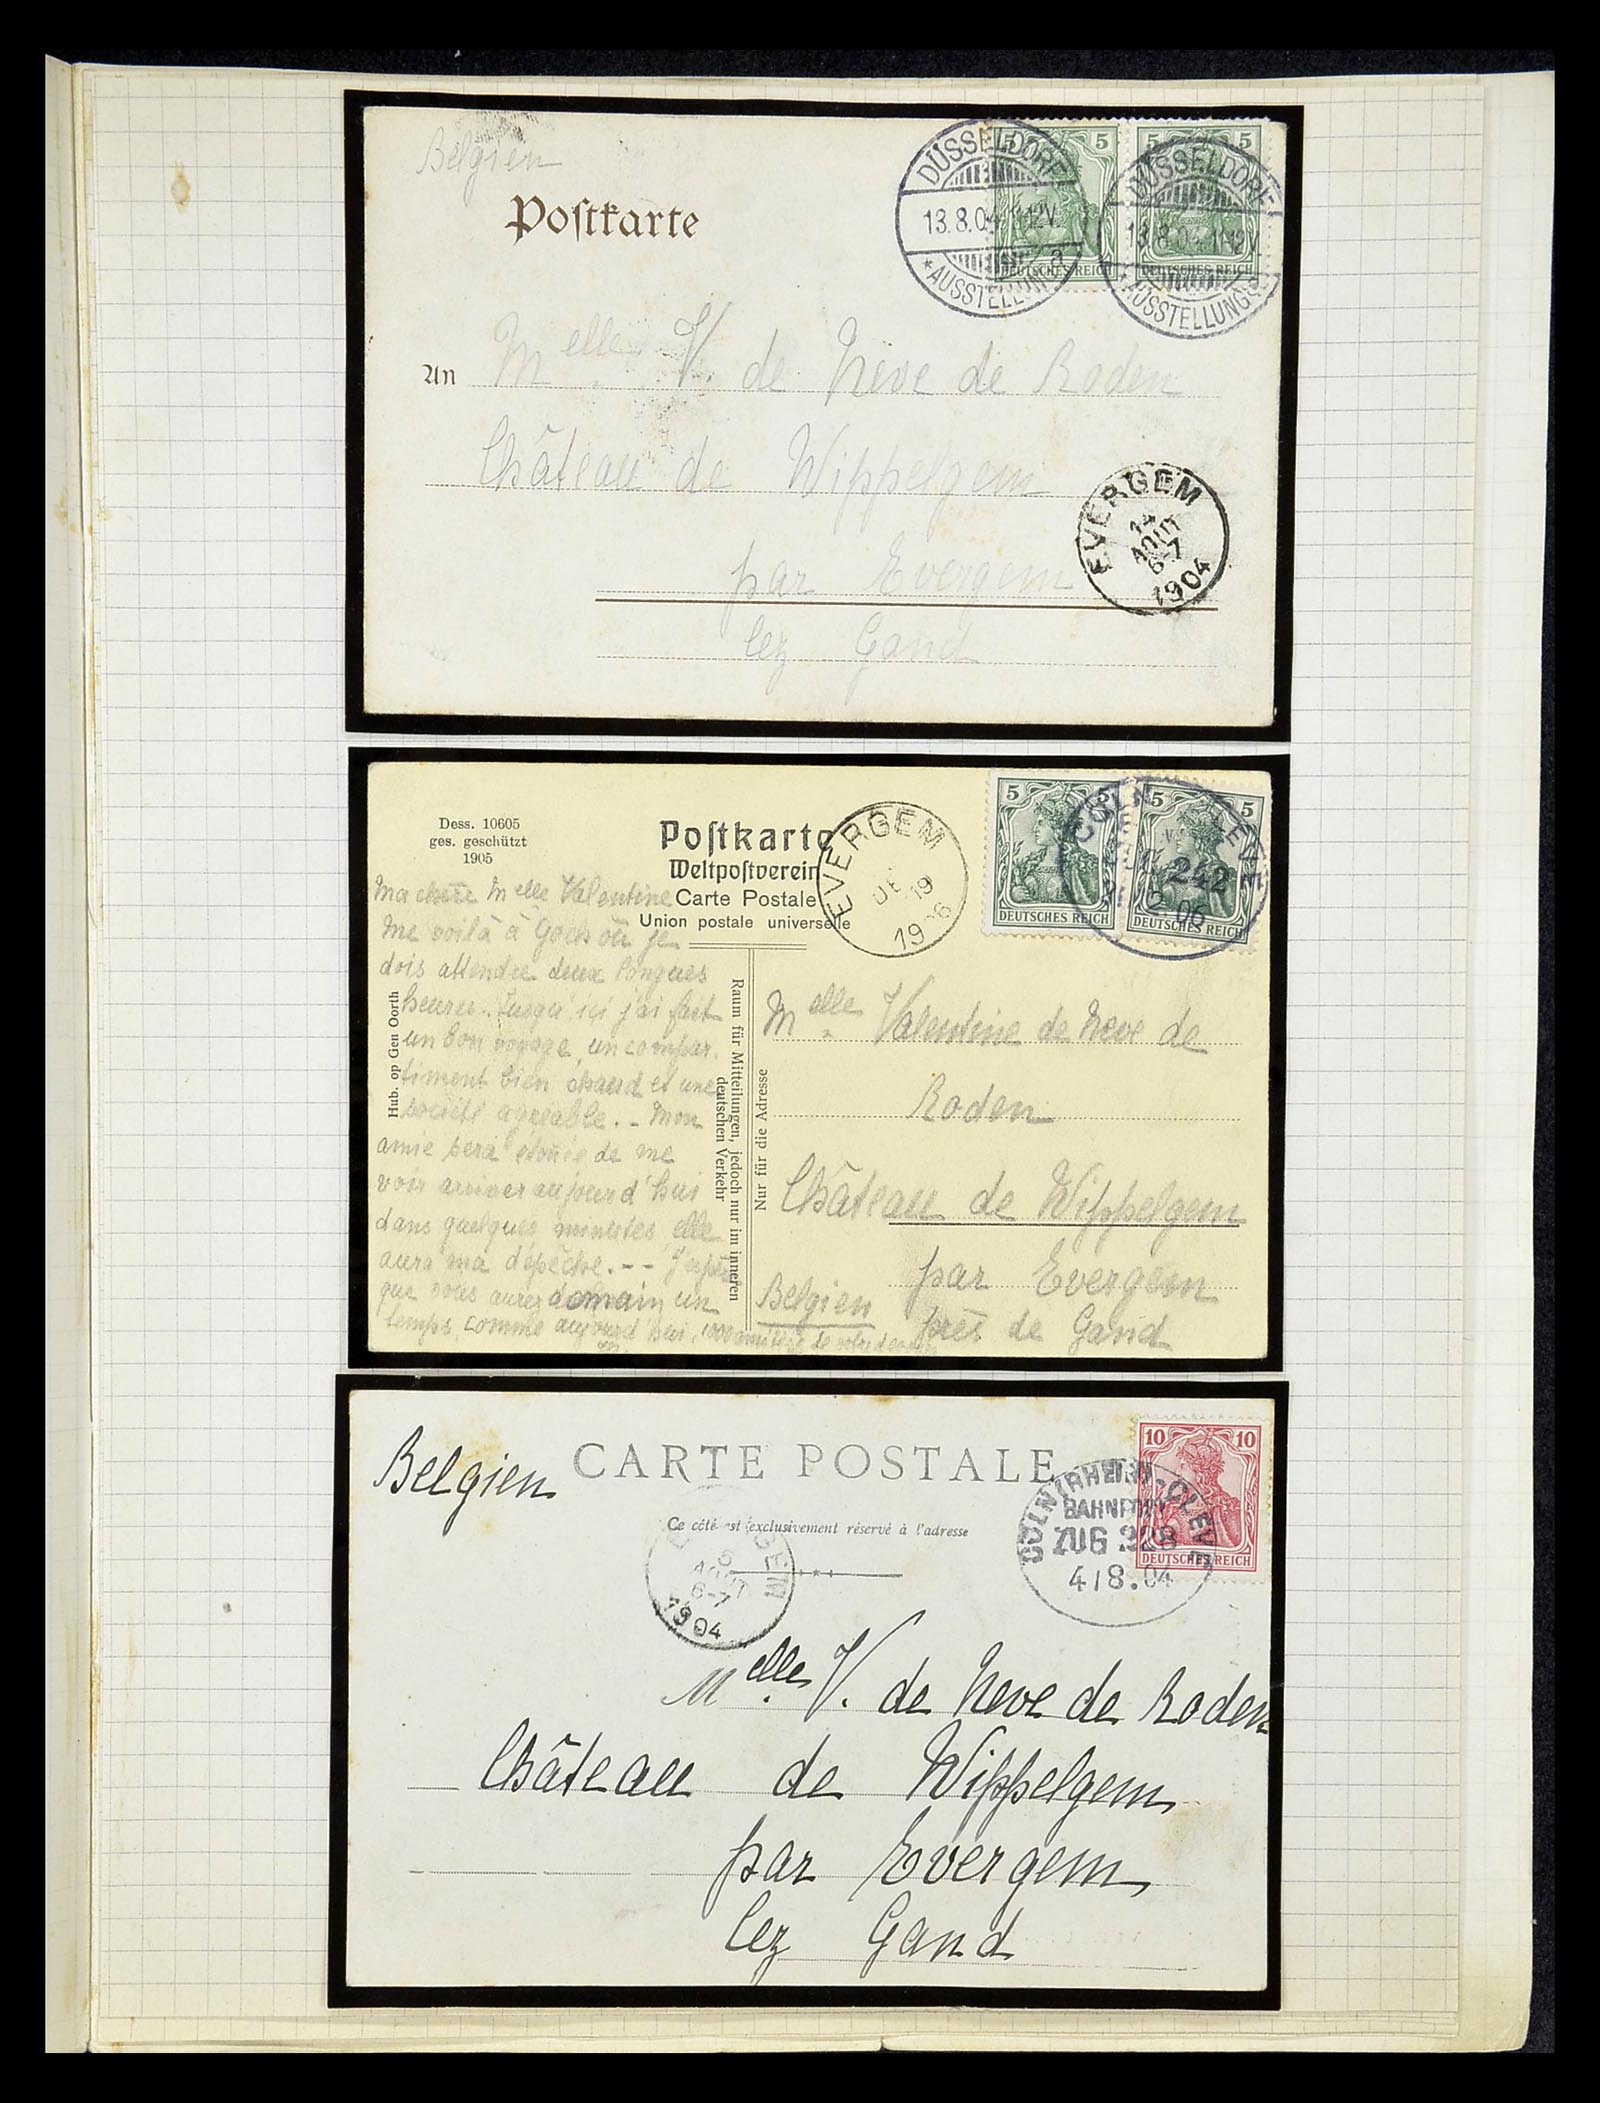 Belgien
Postkarte
5 5 5 5
DEUTSCHES REICH DEUTSCHES REICH
DÜSSELDORF
13.8.04 11-12V.
a
* AUSSTELLUNG
DÜSSELDORF
13.8.04 11-12V
* AUSSTELLUNG a
An Melle V. de Neve de Roden
Château de Wippelgem
par Evergem
lez Gand
EVERGEM
14
AOUT
6-7
1904
Dess. 10605
ges. geschützt
1905
Postkarte
Weltpostverein
Carte Postale
Union postale universelle
EVERGEM
19
1906
5 5 5 5
DEUTSCHES REICH DEUTSCHES REICH
CÖLN CLEVE
242
2 06
Ma chère Melle Valentine
Me voilà à Goch où je
dois attendre deux longues
heures. Jusqu'ici j'ai fait
un bon voyage, un compar-
timent bien chaud et une
société agréable. - Mon
amie sera étonnée de me
voir arriver aujourd'hui
dans quelques minutes elle
aura ma dépêche. -- J'espère
que vous aurez demain un
temps comme aujourd'hui, 1000 amitiés de
Hub. op Gen Oorth
Raum für Mitteilungen, jedoch nur im inneren
deutschen Verkehr
Nur für die Adresse
Melle Valentine de Neve de
Roden
Château de Wippelgem
par Evergem
Belgien près de Gand
Belgien
CARTE POSTALE
Ce côté est exclusivement réservé à l'adresse
10 10
DEUTSCHES REICH
CÖLN (RHEIN)-CLEVE
BAHNPOST
ZUG 328
4/8.04
EVERGEM
6
AOUT
6-7
1904
Melle V. de Neve de Roden
Château de Wippelgem
par Evergem
lez Gand